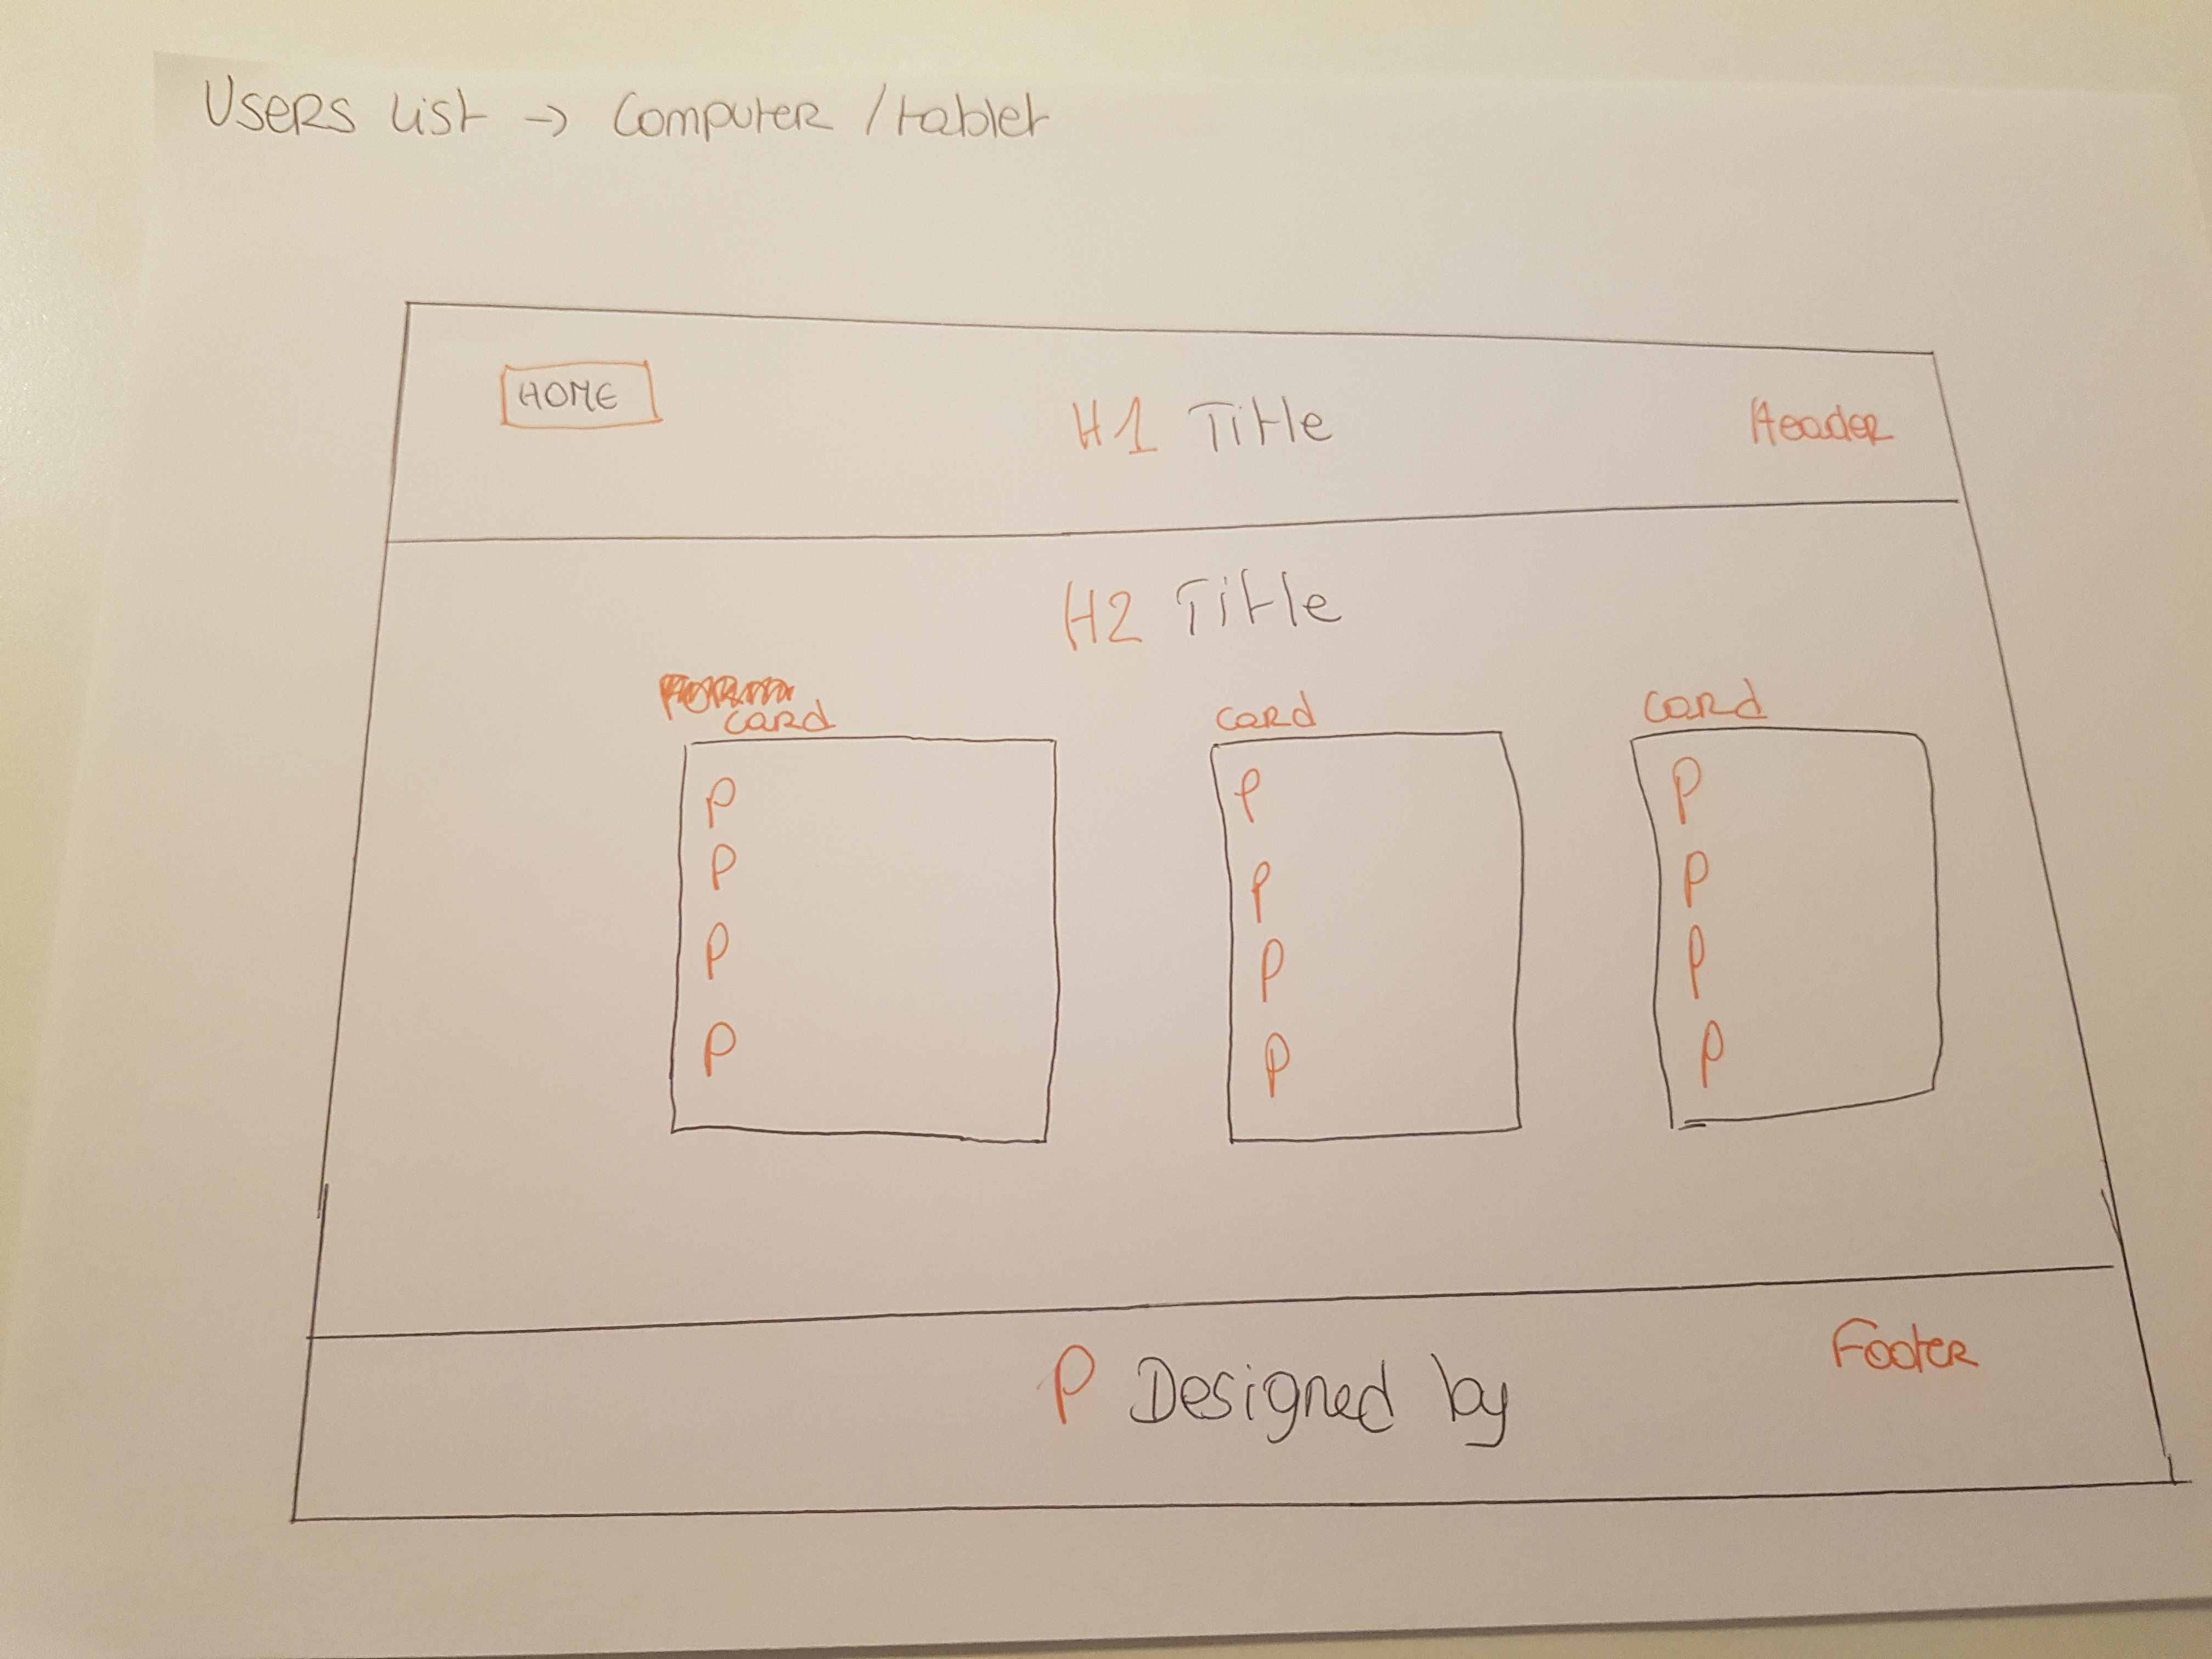 Users list → Computer / tablet
HOME
H1 Title
Header
H2 Title
card
card
card
P
P
P
P
P
P
P
P
P
P
P
P
P Designed by
Footer